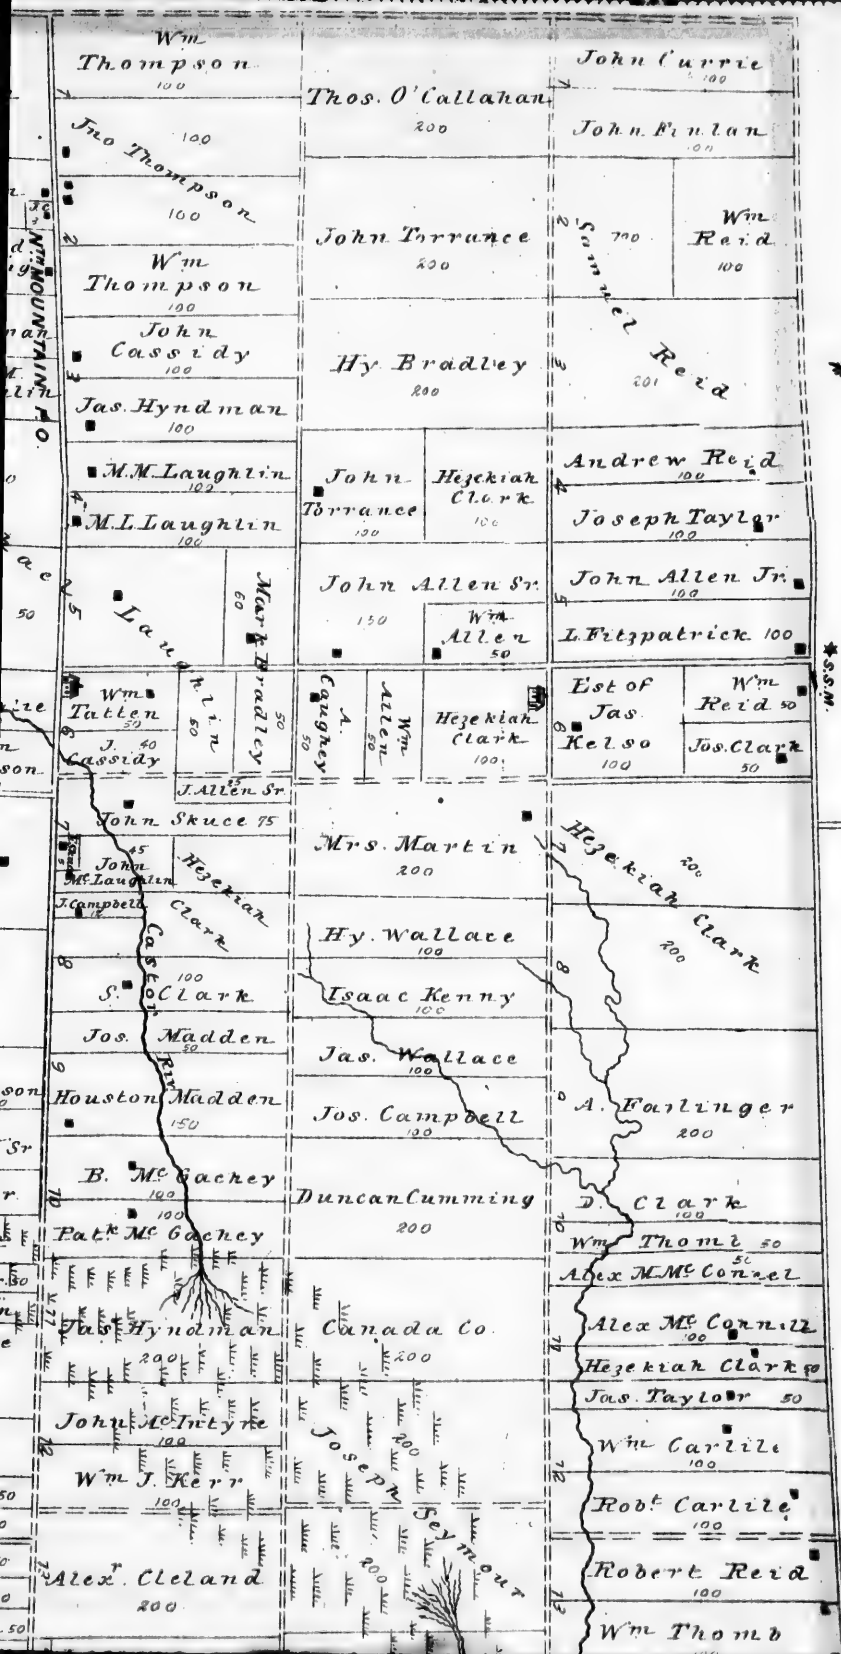 Wm
Thompson
100
1
Jno Thompson
100
100
2
Wm
Thompson
100
John
Cassidy
100
3
Jas. Hyndman
100
M. M. Laughlin
100
4
M. L. Laughlin
100
5
Laughlin
50
Mark Bradley
60
50
Wm
Tatten
50
6
J. 40
Cassidy
25
J. Allen Sr
John Skuce 75
7
45
John
McLaughlin
5
Hezekiah
Clark
J. Campbell
8
100
S. Clark
Castor
Riv.
Jos. Madden
50
9
Houston Madden
150
B. Mc Gachey
100
10
100
Patk Mc Gachey
11
Jas Hyndman
200
John McIntyre
100
12
Wm J. Kerr
100
Alexr. Cleland
200
Nth MOUNTAIN P.O.
50
Thos. O'Callahan
200
John Torrance
200
Hy Bradley
200
John
Torrance
100
Hezekiah
Clark
100
John Allen Sr.
150
Wm
Allen
50
A.
Caughey
50
Wm
Allen
50
Hezekiah
Clark
100
Mrs. Martin
200
Hy. Wallace
100
Isaac Kenny
100
Jas. Wallace
100
Jos. Campbell
100
Duncan Cumming
200
Canada Co.
200
Joseph Seymour
200
200
John Currie
100
1
John Finlan
100
2
Samuel Reid
Wm
Reid
100
3
201
Andrew Reid
100
4
Joseph Taylor
100
John Allen Jr.
100
5
L. Fitzpatrick 100
S.S.M.
Est of
Jas.
Kelso
100
6
Wm
Reid 50
Jos. Clark
50
7
Hezekiah Clark
200
200
8
A. Farlinger
200
D. Clark
100
10
Wm Thoml 50
50
Alex M Mc Connel
Alex Mc Connill
100
11
Hezekiah Clark 50
Jas. Taylor 50
Wm Carlile
100
12
Robt. Carlile
100
Robert Reid
100
13
Wm Thomb